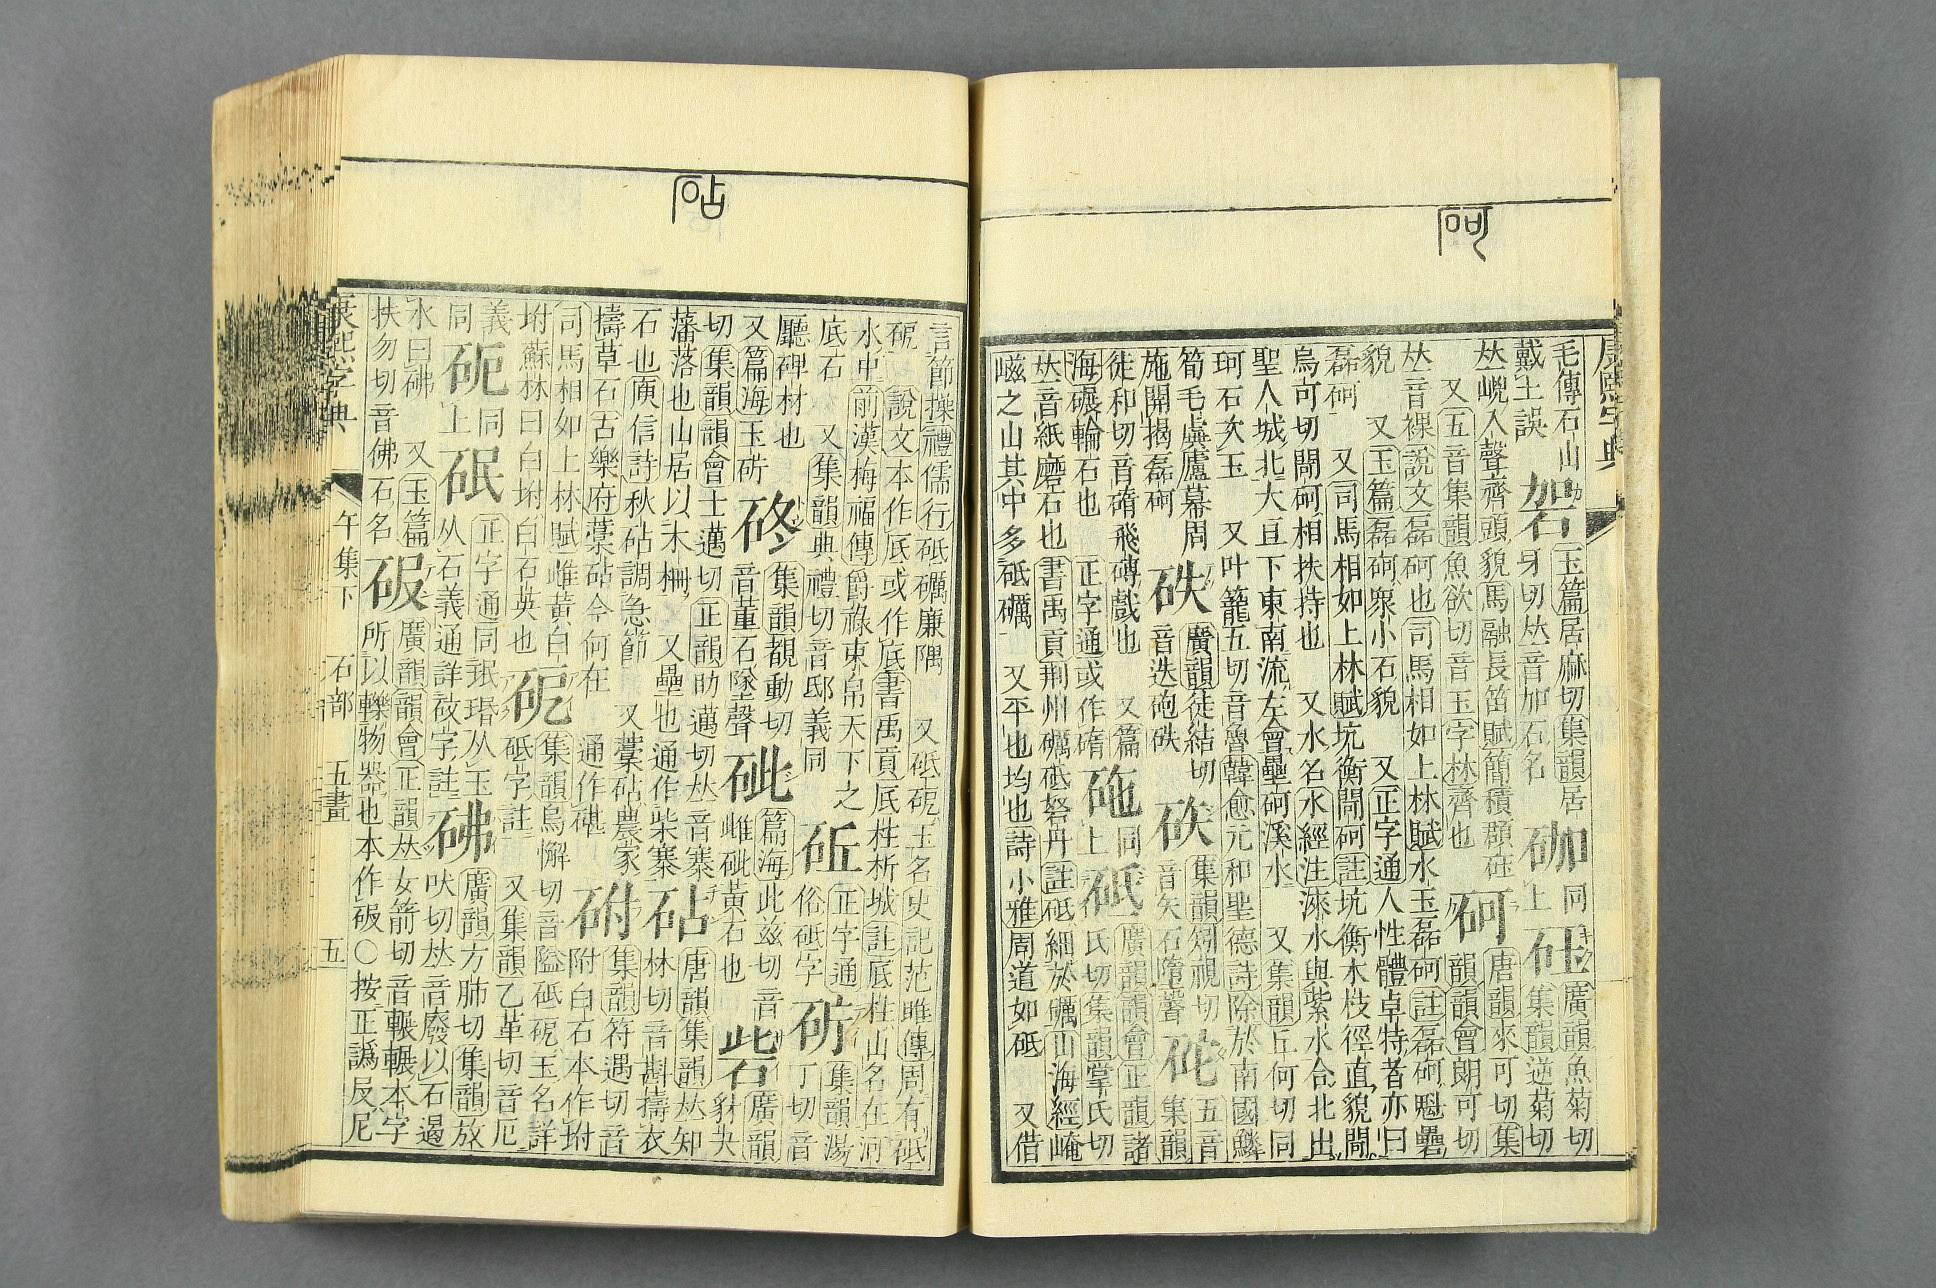 砢
毛傳石山
戴土誤
砮
玉篇居麻切集韻居
身切𠀤音加石名
砳
同
上
砡
廣韻魚菊切
集韻逆菊切
𠀤峴入聲齊頭貌馬融長笛賦簡積頵砡
又五音集韻魚欲切音玉字林齊也
砢
唐韻來可切集
韻韻會朗可切
𠀤音裸說文磊砢也司馬相如上林賦水玉磊砢註磊砢魁礨
貌 又玉篇磊砢衆小石貌 又正字通人性體卓特者亦曰
磊砢 又司馬相如上林賦坑衡閜砢註坑衡木枝徑直貌閜
烏可切閜砢相扶持也 又水名水經注淶水與紫水合北出
聖人城北大亘下東南流左會壘砢溪水 又集韻丘何切同
珂石次玉 又叶籠五切音魯韓愈元和聖德詩除於南國鱗
筍毛虡廬幕周
施開揭磊砢
砄
廣韻徒結切
音迭砲砄
砍
集韻矧視切
音矢石墮聲
砣
五音
集韻
徒和切音碢飛磚戲也 又篇
海碾輪石也 正字通或作碢
砤
同
上
砥
廣韻韻會正韻諸
氏切集韻掌氏切
𠀤音紙磨石也書禹貢荆州礪砥砮丹註砥細於礪山海經崦
嵫之山其中多砥礪 又平也均也詩小雅周道如砥 又借
砧
言節操禮儒行砥礪廉隅 又砥砨玉名史記范睢傳周有砥
砨 說文本作厎或作底書禹貢厎柱析城註厎柱山名在河
水中前漢梅福傳爵祿東帛天下之
底石 又集韻典禮切音邸義同
砠
正字通
俗砥字
砏
集韻湯
丁切音
廳碑材也
又篇海玉斫
硶
集韻覩動切
音董石墜聲
砒
篇海此兹切音
雌砒黃石也
砦
廣韻
豺夬
切集韻韻會士邁切正韻助邁切𠀤音寨
藩落也山居以木柵 又壘也通作柴寨
砧
唐韻集韻𠀤知
林切音斟擣衣
石也庾信詩秋砧調急節 又藁砧農家
擣草石古樂府藁砧今何在 通作碪
砆
集韻符遇切音
附白石本作坿
司馬相如上林賦雌黃白
坿蘇林曰白坿白石英也
砨
集韻烏懈切音隘砥砨玉名詳
砥字註 又集韻乙革切音厄
義
同
砈
同
上
砇
正字通同珉瑉从玉
从石義通詳玟字註
砩
廣韻方肺切集韻放
吠切𠀤音廢以石遏
水曰砩 又玉篇
扶勿切音佛石名
𥑻
廣韻韻會正韻𠀤女箭切音輾輾本字
所以轢物器也本作𥑻○按正譌反𡰥
康熙字典 午集下 石部 五畫 五